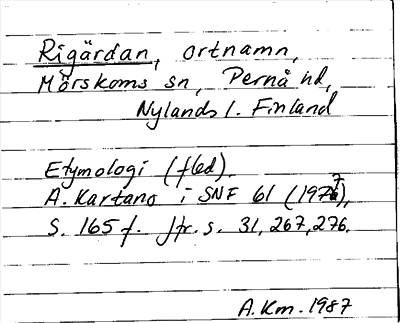 Rigärdan, ortnamn,
Mörskoms sn, Pernå hd,
Nylands l. Finland
Etymologi (fled).
A. Kartano i SNF 61 (1977),
s. 165 f. Jfr. s. 31, 267, 276.
A.Km. 1987